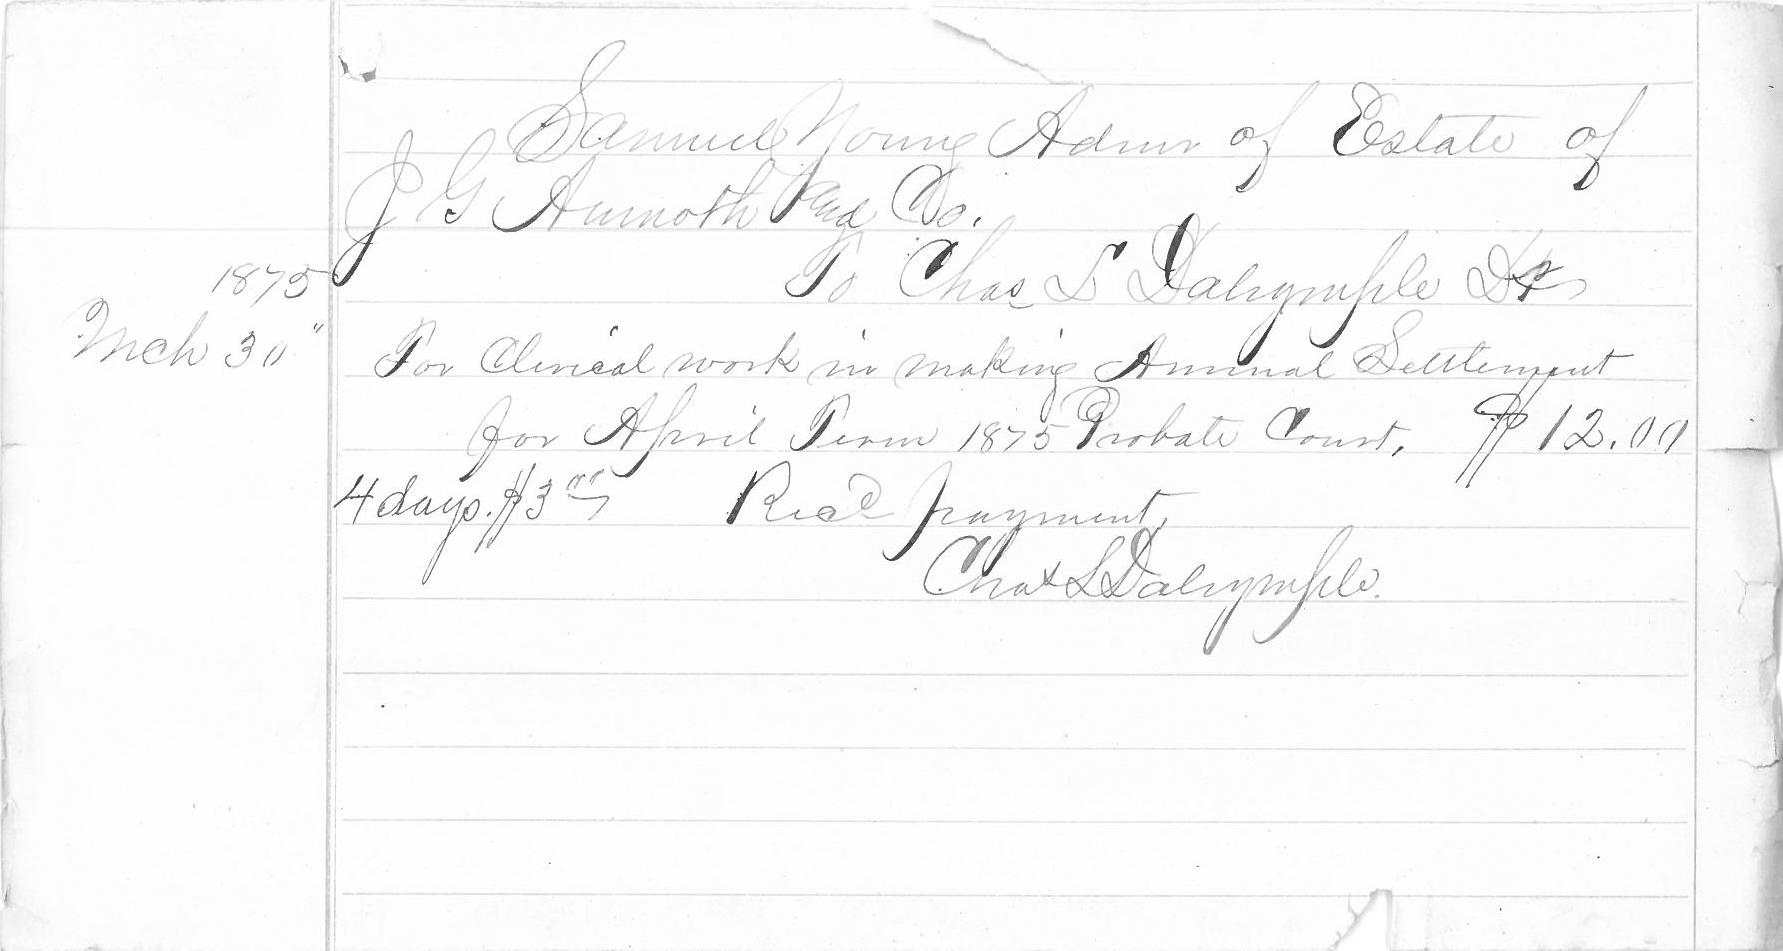 Samuel Young Admr of Estate of
J G Aumoth and Co.
To Chas L Dalrymple Dr
1875
Mch 30" For Clerical work in making Annual Settlement
for April Term 1875 Probate Court, $12.00
4 days. $3 00 Recd payment,
Chas L Dalrymple.